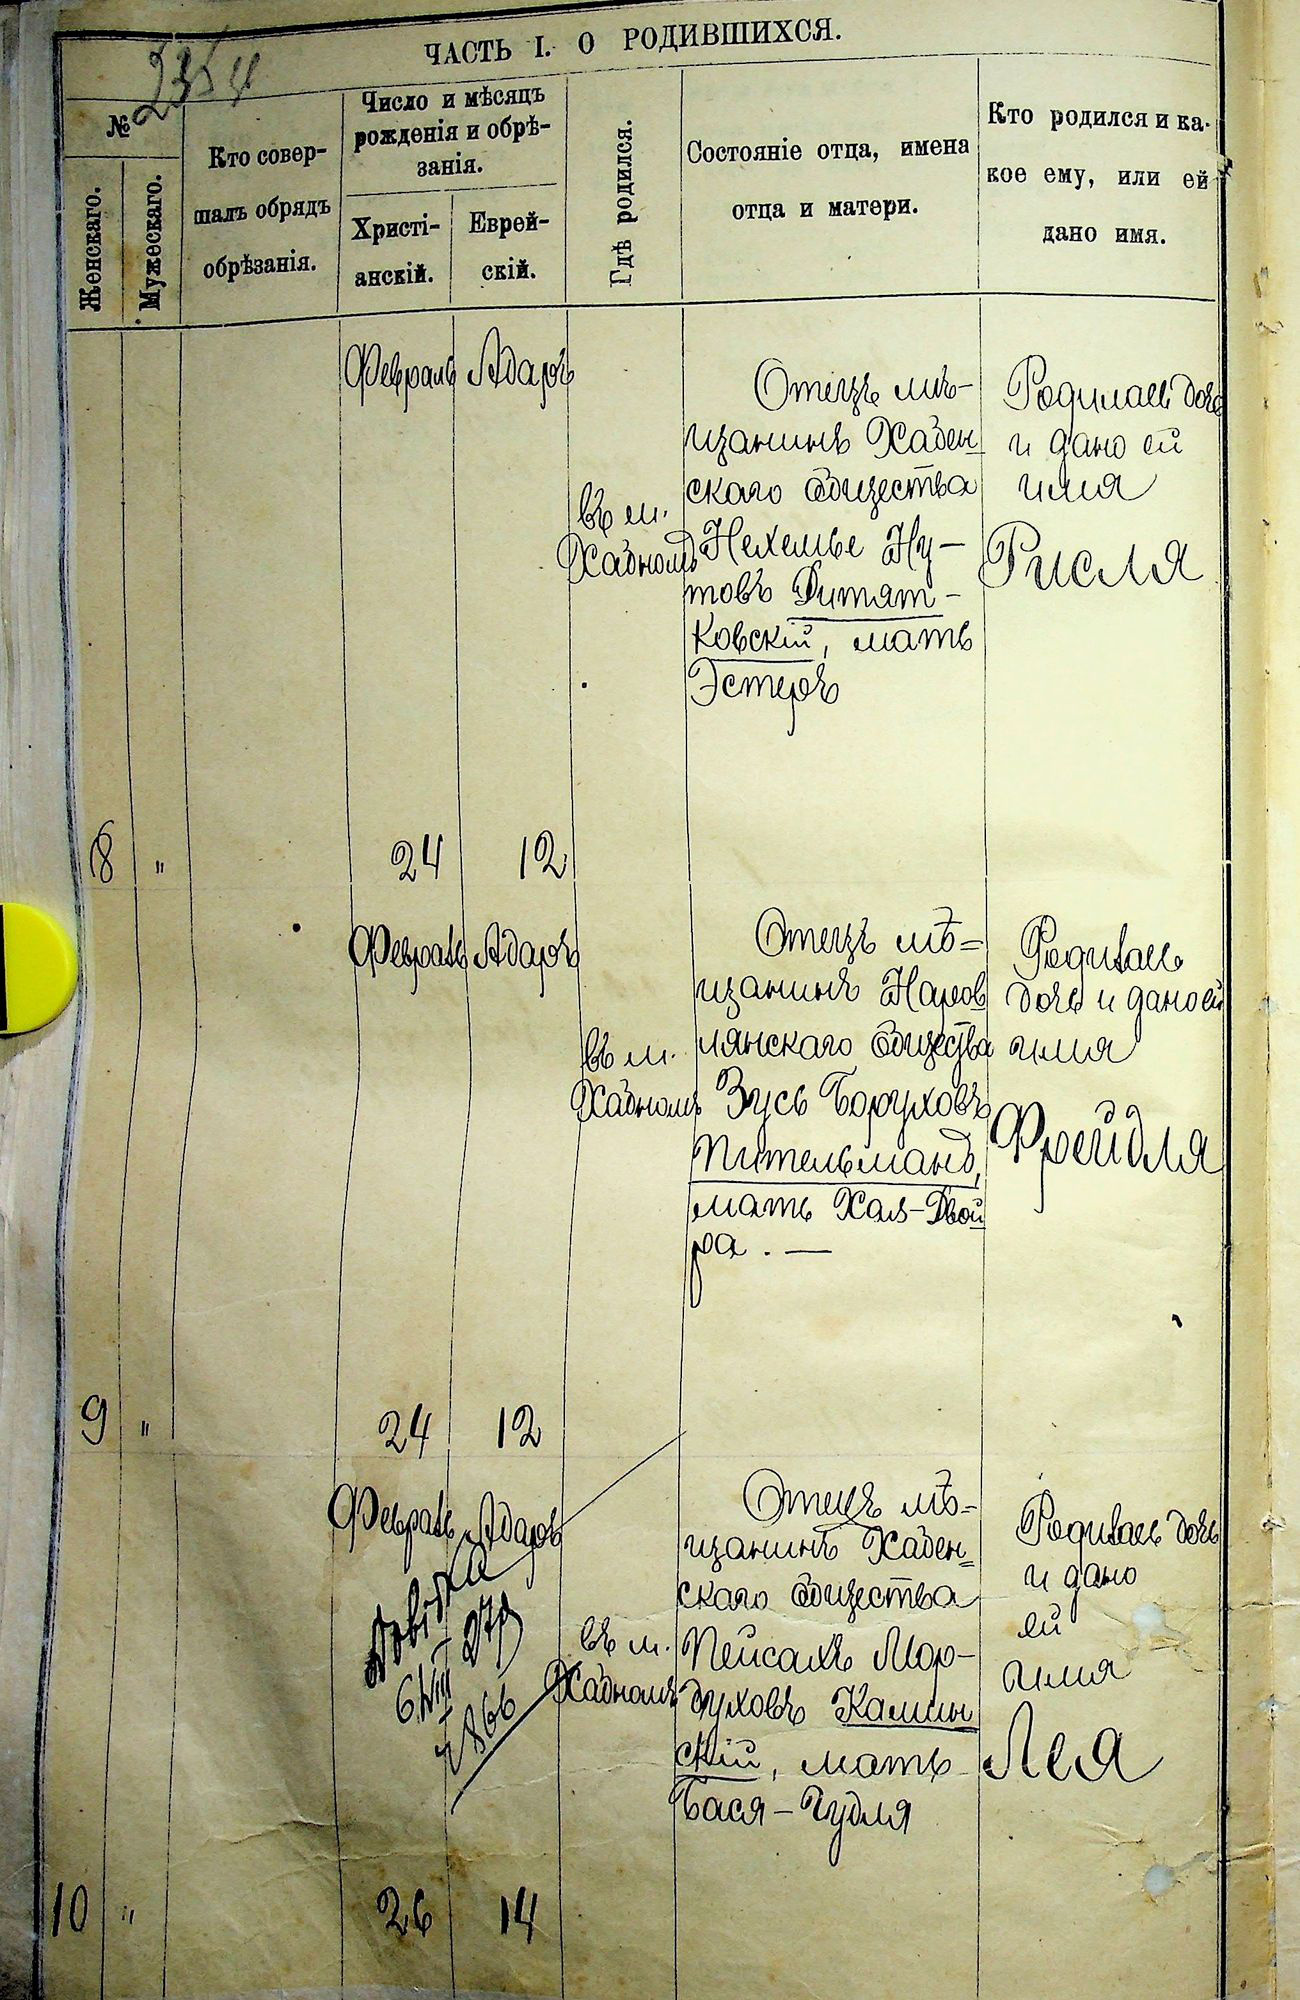 2354
ЧАСТЬ I. О РОДИВШИХСЯ.
№
Женскаго.
Мужескаго.
Кто совер-
шалъ обрядъ
обрѣзанія.
Число и мѣсяцъ
рожденія и обрѣ-
занія.
Христі-
анскій.
Еврей-
скій.
Гдѣ родился.
Состояніе отца, имена
отца и матери.
Кто родился и ка-
кое ему, или ей
дано имя.
8
"
Февраль
24
Адаръ
12
въ м.
Хабномъ
Отецъ мѣ-
щанинъ Хабен-
скаго общества
Нехемье Ну-
товъ Дитят-
ковскій, мать
Эстеръ
Родилась дочь
и дано ей
имя
Рисля
9
"
Февраль
24
Адаръ
12
въ м.
Хабномъ
Отецъ мѣ=
щанинъ Наров
лянскаго общества
Зусь Боруховъ
Пительманъ,
мать Хая-Двой
ра. —
Родилась
дочь и дано ей
имя
Фрейдля
10
"
Февраль
26
Адаръ
14
6/VIII
1866
въ м.
Хабномъ
Отецъ мѣ=
щанинъ Хабен=
скаго общества
Пейсахъ Мор-
духовъ Камин
скій, мать
Бася-Гудля
Родилась дочь
и дано
ей
имя
Лея